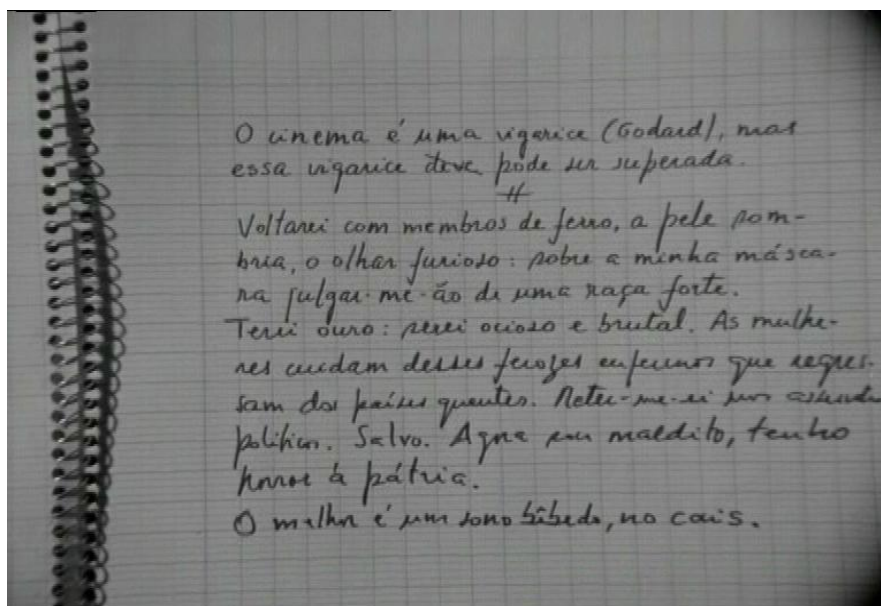 O cinema é uma vigarice (Godard), mas
essa vigarice deve pode ser superada.
#
Voltarei com membros de ferro, a pele som-
bria, o olhar furioso: sobre a minha másca-
ra julgar-me-ão de uma raça forte.
Terei ouro: serei ocioso e brutal. As mulhe-
res cuidam desses ferozes enfermos que regres-
sam dos países quentes. Meter-me-ei nos assuntos
políticos. Salvo. Agora sou maldito, tenho
horror à pátria.
O melhor é um sono bêbedo, no cais.